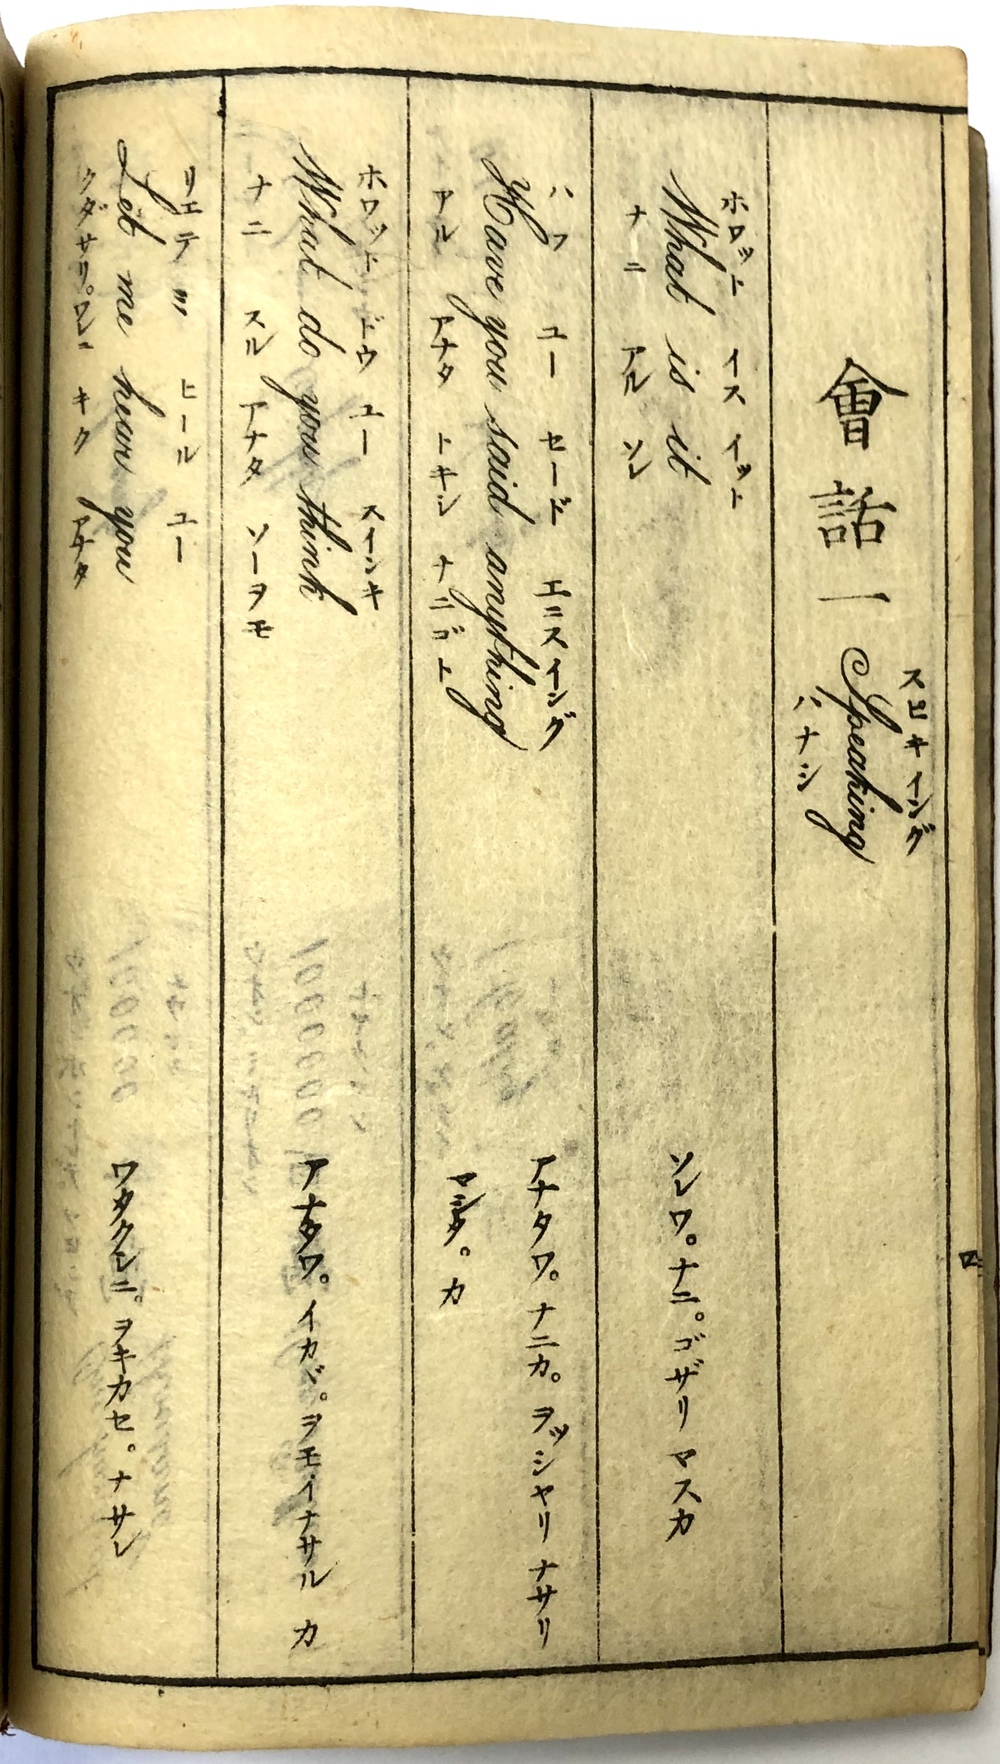 會話一
スピキイング
Speaking
ハナシ
ホワット イス イット
What is it
ナニ アル ソレ
ソレワ。ナニ。ゴザリマスカ
ハフ ユー セード エニスイング
Have you said anything
アル アナタ トキシ ナニゴト
アナタワ。ナニカ。ヲッシャリナサリ
マシタ。カ
ホワット ドウ ユー スインキ
What do you think
ナニ スル アナタ ソーヲモ
アナタワ。イカヾ。ヲモイナサルカ
リエテ ミ ヒール ユー
Let me hear you
クダサリ。ワレニ キク アナタ
ワタクシニ。ヲキカセ。ナサレ